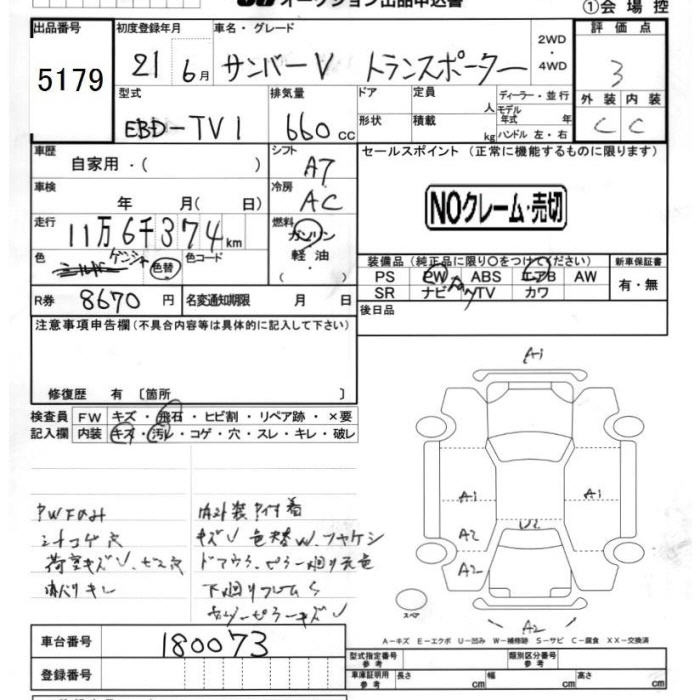 オークション出品申込書
①会場控
出品番号 初度登録年月 車名・グレード 評価点
5179 21 6月 サンバーV トランスポーター 2WD・4WD 3
型式 排気量 ドア 定員 人 ディーラー・並行 外装 内装
EBD-TV1 660cc 形状 積載 kg モデル年式 年 C C
ハンドル 左・右
車歴 自家用・( ) シフト AT セールスポイント (正常に機能するものに限ります)
車検 年 月( 日) 冷房 AC NOクレーム・売切
走行 11万6千374km 燃料 ガソリン 軽油・( )
色 色替 色コード 装備品(純正品に限り○をつけてください) 新車保証書
PS PW ABS エアB AW 有・無
R券 8670円 名変通知期限 月 日 SR ナビ TV カワ
後日品
注意事項申告欄(不具合内容等は具体的に記入して下さい)
修復歴 有 〔箇所 〕
検査員 FW キズ・飛石・ヒビ割・リペア跡・×要
記入欄 内装 キズ・汚レ・コゲ・穴・スレ・キレ・破レ
A1
A1 A1
A2 U2
A2
A2
スペア
PWFのみ
シートコゲ穴
荷室キズU、ビス穴
内バリキレ
キズU 色替W、
下廻りフレームS
A-キズ E-エクボ U-凹み W-補修跡 S-サビ C-腐食 XX-交換済
車台番号 180073
登録番号
型式指定番号 参考 類別区分番号 参考
車庫証明用 参考 長さ cm 幅 cm 高さ cm